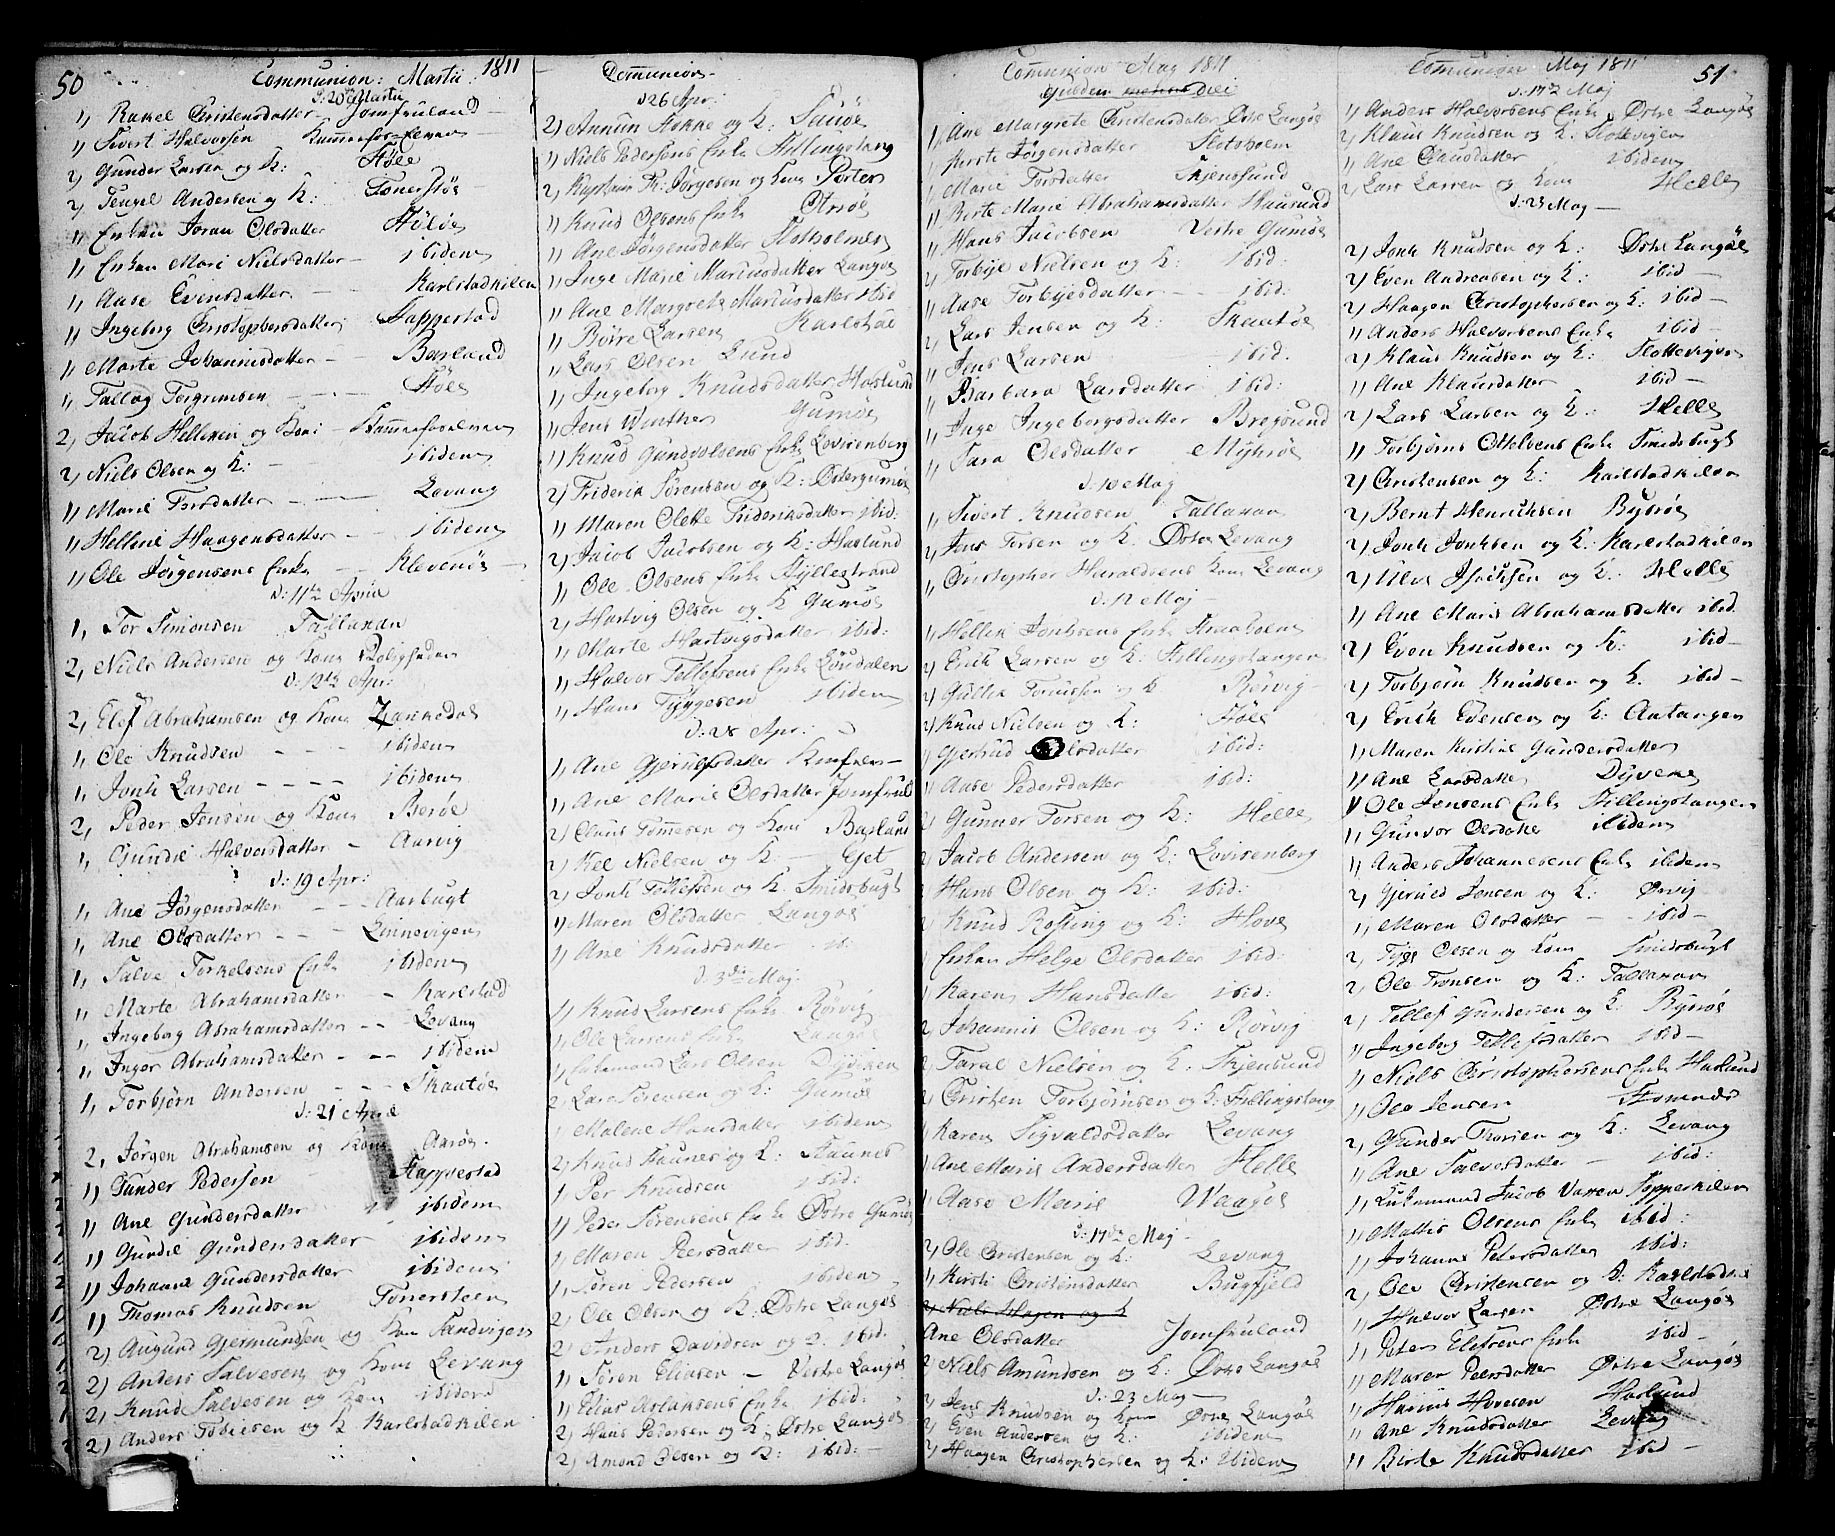 50
Communion: Martii 1811
d: 20 Martii
1, Rakel Christensdatter - Jomfruland
1, Sivert Halvorsen Kammerfos-Elven
2, Gunder Larsen og K: Støle
2, Tengel Andersen og K: Tonerstøe
1, Enken Joran Olsdatter Støle
1, Enken Mari Nielsdatter - ibidem
1, Aase Evensdatter - Karlstadkilen
1, Ingeborg Christophersdatter Stappestad
1, Marte Johannisdatter - Barland
1, Tallag Torgrimsen - Støle
2, Jacob Hellesen og Kone - Kammerfoselven
2, Niels Olsen og K: - ibidem
1, Marie Torsdatter - Levang
1, Helline Haagensdatter - ibidem
1, Ole Jørgensens Enke - Klevenøe
d: 11te April
1, Tor Simonsen Tallaxan
2, Niels Andersen og Kone Roligheden
d: 12te Apr:
2, Elef Abrahamsen og Kone Zankedal
1, Ole Knudsen - ibidem
1, Jonti Larsen - ibidem
2, Peder Jensen og Kone Berøe
1, Gundil Halvorsdatter - Aarvig
d: 19 Apr:
1, Ane Jørgensdatter - Aarbugt
1, Ane Olsdatter - Linnevigen
1, Salve Torkelsens Enke ibidem
1, Marte Abrahamsdatter - Karlstad
1, Ingeborg Abrahamsdatter - Levang
1, Inger Abrahamsdatter - ibidem
1, Torbjørn Andersen - Skaatøe
d: 21 April
2, Jørgen Abrahamsen og Kone Aarøe
1, Gunder Pedersen Stappestad
1, Ane Gundersdatter ibidem
1, Gundil Gundersdatter ibidem
1, Johanne Gundersdatter ibidem
1, Thomas Knudsen Tonersteen
2, Augund Gjermundsen og Kone Sandvigen
2, Anders Salvesen og Kone Levang
2, Knud Salvesen og Kone ibidem
2, Anders Tobiesen og K Karlstadkilen
Communion
d 26 Apr:
2, Annun Stokke og K: Sauøe
1, Niels Pedersens Enke Fillingstang
2, Kaptain Th: Jørgesen og Kone Porter
1, Knud Olsens Enke Arøe
1, Ane Jørgensdatter Slotholmen
1, Inge Marie Mariusdatter Langøe
1, Ane Margrete Mariusdatter ibid
1, Børre Larsen Karlstøe
1, Lars Olsen Lund
1, Ingeborg Knudsdatter Haslund
1, Jens Winther Gumøe
1, Knud Gundvolsens Enke Lovisenberg
2, Friderik Sørensen og K: Østergumøe
1, Maren Olette Frideriksdatter ibid:
2, Jacob Jacobsen og K: Haslund
1, Ole Olsens Enke Hyllestrand
2, Hartvig Olsen og K Gumøe
1, Marte Hartvigsdatter ibid:
1, Halvor Tellefsens Enke Lousdalen
1, Hans Tyggesen ibidem
d: 28 Apr:
1, Ane Gjerulfsdatter
1, Ane Marie Olsdatter Jomfruld
2, Claus Tommesen og Kone Barland
2, Kel Nielsen og K: - Gjet
2, Jonti Tellefsen og K. Smidsbugt
1, Maren Olsdatter Langøe
1, Ane Knudsdatter ib:
d. 3die Maj
1, Knud Larsens Enke Rørvig
1, Ole Larsens Enke Langøe
1, Enkemand Lars Olsen Dydiken
2, Lars Sørensen og K: Gumøe
1, Malene Hansdatter ibidem
2, Knud Faunes og K: Staunes
1, Per Knudsen ibid:
1, Peder Sørensens Enke Østre Gumøe
1, Maren Peersdatter ibid:
1, Søren Pedersen ibidem
2, Ole Olsen og K. Østre Langøe
2, Anders Davidsen og K. ibid:
1, Søren Eliasen - Vestre Langøe
1, Elias Aslaksens Enke ibid:
2, Hans Pedersen og K, Østre Langøe
2, Amond Olsen og K: ibid: -
Communion Maj 1811
1, Ane Margrete Christensdatter Østre Langøe
1, Kirste Jørgensdatter Slotsholm
1, Marie Torsdatter Skjensund
1, Birte Marie Abrahamsdatter Hausund
1, Hans Jacobsen Vestre Gumøe
2, Torbije Nielsen og K: ibid:
1, Aase Torbijesdatter - ibid:
2, Lars Jensen og K: Skaatøe
1, Jens Larsen - ibid:
1, Barbara Larsdatter ibid:
1, Inge Ingeborgsdatter Bregsund
1, Sara Olsdatter Myhrøe
d. 10 Maj
1, Sivert Knudsen Tallaxan
2, Jens Torsen og K: Østre Levang
1, Christopher Haraldsens Kone Levang
d: 12 Maj
1, Hellik Jontsens Enke Straaholm
2, Erik Larsen og K: Fillingstangen
2, Gullik Torrissen og K Rørvig
2, Knud Nielsen og K: Støle
1, Gjertrud Olsdatter ibid:
1, Aase Pedersdatter ibid:
2, Gunner Torsen og K: Helle
2, Jacob Andersen og K: Lovisenberg
2, Hans Olsen og K: ibid:
2, Knud Rosting og K: Hove
1, Enken Helge Olsdatter ibid:
1, Karen Hansdatter ibid:
2, Johannis Olsen og K: Rørvig
2, Taral Nielsen og K: Skjensund
2, Christen Torbjørnsen og K: Fillingstang
1, Karen Sigvaldsdatter Levang
1, Ane Marie Andersdatter Helle
1, Aase Marie Waagøe
d: 17de Maj
2, Ole Christensen og K: Levang
1, Kirsti Christensdatter Bugfjeld
2, Niels Hagen og K
Ane Olsdatter Jomfruland
2, Niels Amundsen og K: Østre Langøe
d: 23 Maj
2, Jens Knudsen og Kone Østre Langøe
2, Even Andersen og K: ibidem
2, Haagen Christophersen og K: ibidem
Communion Maj 1811
51
d: 17de Maj
1, Anders Halvorsens Enke Østre Langøe
2, Klaus Knudsen og K: Slottevigen
1, Ane Clausdatter ibidem
2, Lars Larsen og Kone Helle
d: 23 Maj
2, Jonti Knudsen og K: Østre Langøe
2, Even Andreasen og K: ibid
2, Haagen Christophersen og K: ibid
1, Anders Halvorsens Enke ibid
2, Klaus Knudsen og K: Slottevigen
1, Ane Klausdatter ibid
2, Lars Larsen og K: Helle
1, Torbjørns Ottelsens Enke Smidsbugt
2, Christensen og K: Karlstadkilen
2, Bernt Henrichsen Byrøe
2, Jonti Jontsen og K: Karlstadkilen
2, Ulve Isachsen og K: Helle
1, Ane Maris Abrahamsdatter ibid.
2, Even Knudsen og K: ibid
2, Torbjørn Knudsen og K. ibid
2, Erich Evensen og K: Antangen
1, Maren Kirstine Gundersdatter
1, Ane Larsdatter Dyvene
1, Ole Jensens Enke Fillingstangen
1, Gunvor Olsdatter ibidem
1, Anders Johannesens Enke ibidem
2, Gjeruld Jensen og K: Ørvig
1, Maren Olsdatter - ibid
2, Tyge Olsen og Kone Smidsbugt
2, Ole Tronsen og K: Tallaxan
2, Tellef Gundersen og K: Byrøe
1, Ingeborg Tellefsdatter ibid:
1, Niels Christophersens Enke Haslund
1, Ole Jensen Stomnæs
2, Gunder Thorsen og K: Levang
1, Ane Salvesdatter - ibid:
1, Enkemand Jacob Vassen Topperkilen
1, Mattis Olsens Enke ibid:
1, Johanne Petersdatter ibid:
2, Ole Christensen og K: Karlstadkil
1, Halvor Larsen Østre Langøe
1, Peters Elefsens Enke ibid
1, Maren Peersdatter Østre Langøe
1, Haslund
1, Ane Knudsdatter Levang
1, Birte Knudsdatter ibid